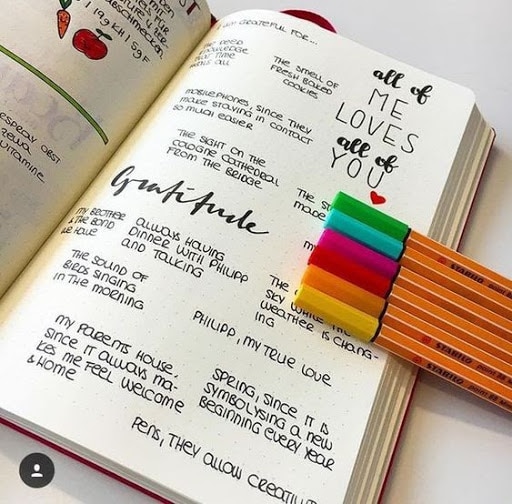 19g KH | 5g F
OBST
VITAMINE
GRATEFUL FOR...
KNOWLEDGE
THAT TIME
ALL
THE SMELL OF
FRESH BAKED
COOKIES
MOBILEPHONES, SINCE THEY
MAKE STAYING IN CONTACT
SO MUCH EASIER
THE SIGHT ON THE
COLOGNE CATHEDRAL
FROM THE BRIDGE
all of
ME
LOVES
all of
YOU
THE
MADE
Gratitude
MY BROTHER
& THE BOND
WE HAVE
ALWAYS HAVING
DINNER WITH PHILIPP
AND TALKING
THE SOUND OF
BIRDS SINGING
IN THE MORNING
THE
SKY WHILE THE
WEATHER IS CHANG-
ING
PHILIPP, MY TRUE LOVE
MY PARENTS HOUSE,
SINCE IT ALWAYS MA-
KES ME FEEL WELCOME
& HOME
SPRING, SINCE IT IS
SYMBOLYSING A NEW
BEGINNING EVERY YEAR
PENS, THEY ALLOW
STABILO point 88
STABILO point 88
STABILO point 88
STABILO point 88